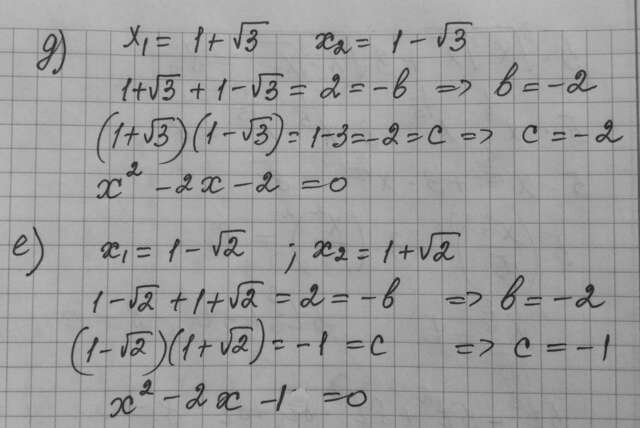 д) x₁ = 1+√3 x₂ = 1-√3
1+√3 + 1-√3 = 2 = -b => b = -2
(1+√3)(1-√3) = 1-3 = -2 = c => c = -2
x² - 2x - 2 = 0
е) x₁ = 1-√2 ; x₂ = 1+√2
1-√2 + 1+√2 = 2 = -b => b = -2
(1-√2)(1+√2) = -1 = c => c = -1
x² - 2x - 1 = 0